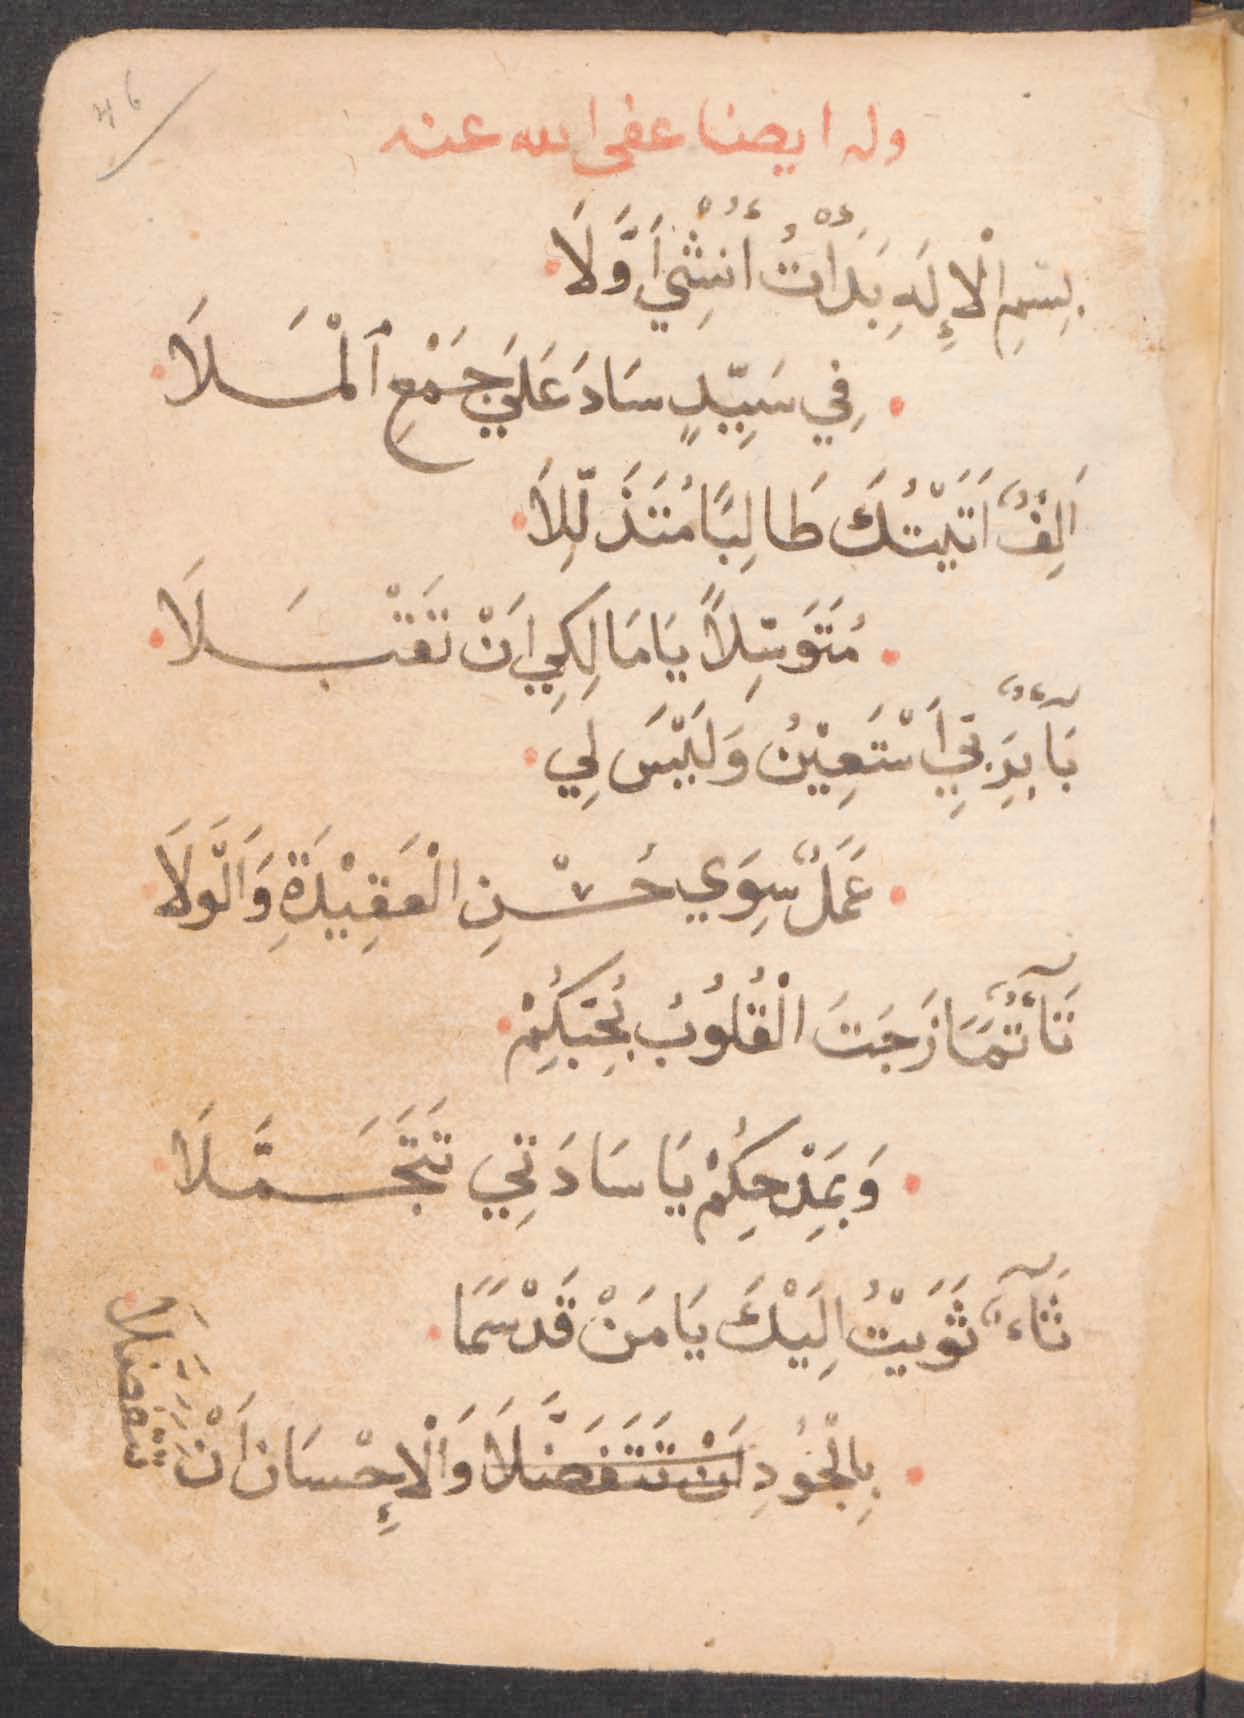 46
وله ايضا عفى الله عنه
بِسْمِ الْإِلَهِ بَدَأْتُ أُنْشِي أَوَّلَا
فِي سَيِّدٍ سَادَ عَلَي جَمْعِ ٱلْمَلَا
اَلِفٌ اَتَيْتُكَ طَالِبًا مُتَذَلِّلَا
مُتَوَسِّلًا يَا مَالِكِي اَنْ تَقْبَلَا
بَآءٌ بِرَبِّي اَسْتَعِيْنُ وَلَيْسَ لِي
عَمَلٌ سِوَي حُسْنِ الْعَقِيْدَةِ وَالْوَلَا
تَآءٌ تَمَازَجَتَ الْقُلُوبُ بِحُبِّكُمْ
وَبِمَدْحِكُمْ يَا سَادَتِي تَتَجَمَّلَا
ثَآءٌ ثَوَيْتُ اِلَيْكَ يَا مَنْ قَدْ سَمَا
بِالْجُوْدِ اَنْ تَتَفَضَّلَا وَالْاِحْسَان اَنْ تَتَفَضَّلَا